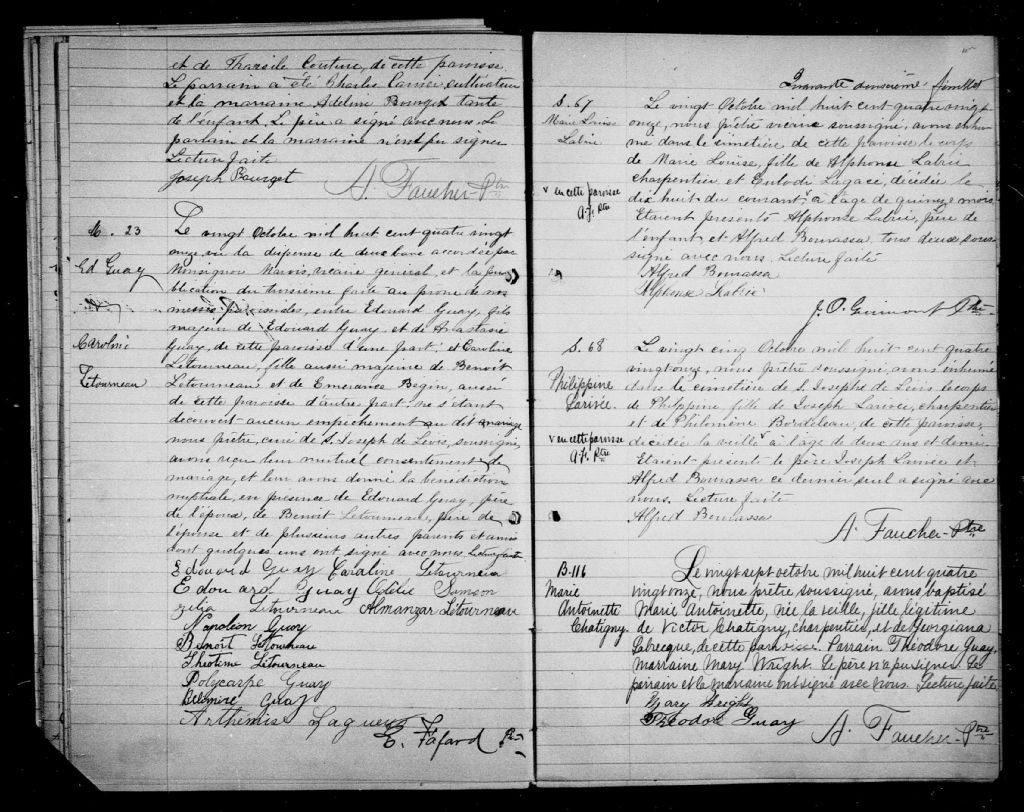 et de Tharsile Couture, de cette paroisse.
Le parrain a été Charles Carrier, cultivateur
et la marraine Adeline Bourget tante
de l'enfant. Le père a signé avec nous. Le
parrain et la marraine n'ont pu signer
Lecture faite
Joseph Bourget
A. Faucher Ptre
M. 23
Ed Guay
et
Caroline
Letourneau
Le vingt Octobre mil huit cent quatre vingt
onze vu la dispense de deux bans accordée par
Monsignor Marois, vicaire general, et la pu
blication du troisième faite au prone de nos
messes paroissiales, entre Edouard Guay, fils
majeur de Edouard Guay et de Anastasie
Guay, de cette paroisse d'une part; et Caroline
Létourneau, fille aussi majeure de Benoit
Letourneau et de Emerance Begin, aussi
de cette paroisse d'autre part, ne s'étant
découvert aucun empêchement au dit mariage
nous prêtre, curé de St Joseph de Levis, soussigné,
avons reçu leur mutuel consentement de
mariage, et leur avons donné la benediction
nuptiale, en presence de Edouard Guay, père
de l'époux, de Benoit Letourneau, père de
l'épouse et de plusieurs autres parents et amis
dont quelques uns ont signé avec nous. Lecture faite
Edouard Guay Caroline Letourneau
Edouard Guay Odélie Samson
Zelia Letourneau Almanzar Létourneau
Napoléon Guay
Benoit Letourneau
Théotime Letourneau
Polycarpe Guay
Guay
Arthémise Lagueux
E. Fafard Ptre
Quarante douxieme
S. 67
Marie Louise
Labrie
v en cette paroisse
A. F. Ptre
Le vingt Octobre mil huit cent quatre vingt
onze, nous prêtre vicaire soussigné, avons inhu
mé dans le cimetière de cette paroisse le corps
de Marie Louise, fille de Alphonse Labrie
charpentier, et Lagacé, décédée le
dix huit du courant v à l'age de quinze mois
Etaient presents Alphonse Labrie, père de
l'enfant et Alfred Bourassa, tous deux sous
signé avec nous. Lecture faite
Alfred Bourassa
Alphonse Labrie
J. O. Guimont Ptre
S. 68
Philippine
Larivée
v en cette paroisse
A. F. Ptre
Le vingt cinq Octobre mil huit cent quatre
vingt onze, nous prêtre soussigné, avons inhumé
dans le cimetière de S. Joseph de Levis le corps
de Philippine, fille de Joseph Larivée, charpentier
et de Philomène Bordeleau, de cette paroisse,
décédée la veille v à l'age de deux ans et demi.
Etaient présents le père Joseph Larivée et
Alfred Bourassa ce dernier seul a signé avec
nous. Lecture faite
Alfred Bourassa
A. Faucher Ptre
B. 116
Marie
Antoinette
Chatigny.
Le vingt sept octobre mil huit cent quatre
vingt onze, nous prêtre soussigné, avons baptisé
Marie Antoinette, née la veille, fille légitime
de Victor Chatigny, charpentier, et de Georgiana
Labrecque, de cette paroisse. Parrain Théodore Guay,
Marraine Mary Wright. Le père n'a pu signer. Le
parrain et la marraine ont signé avec nous. Lecture faite
Mary Wright
Théodore Guay
A. Faucher Ptre